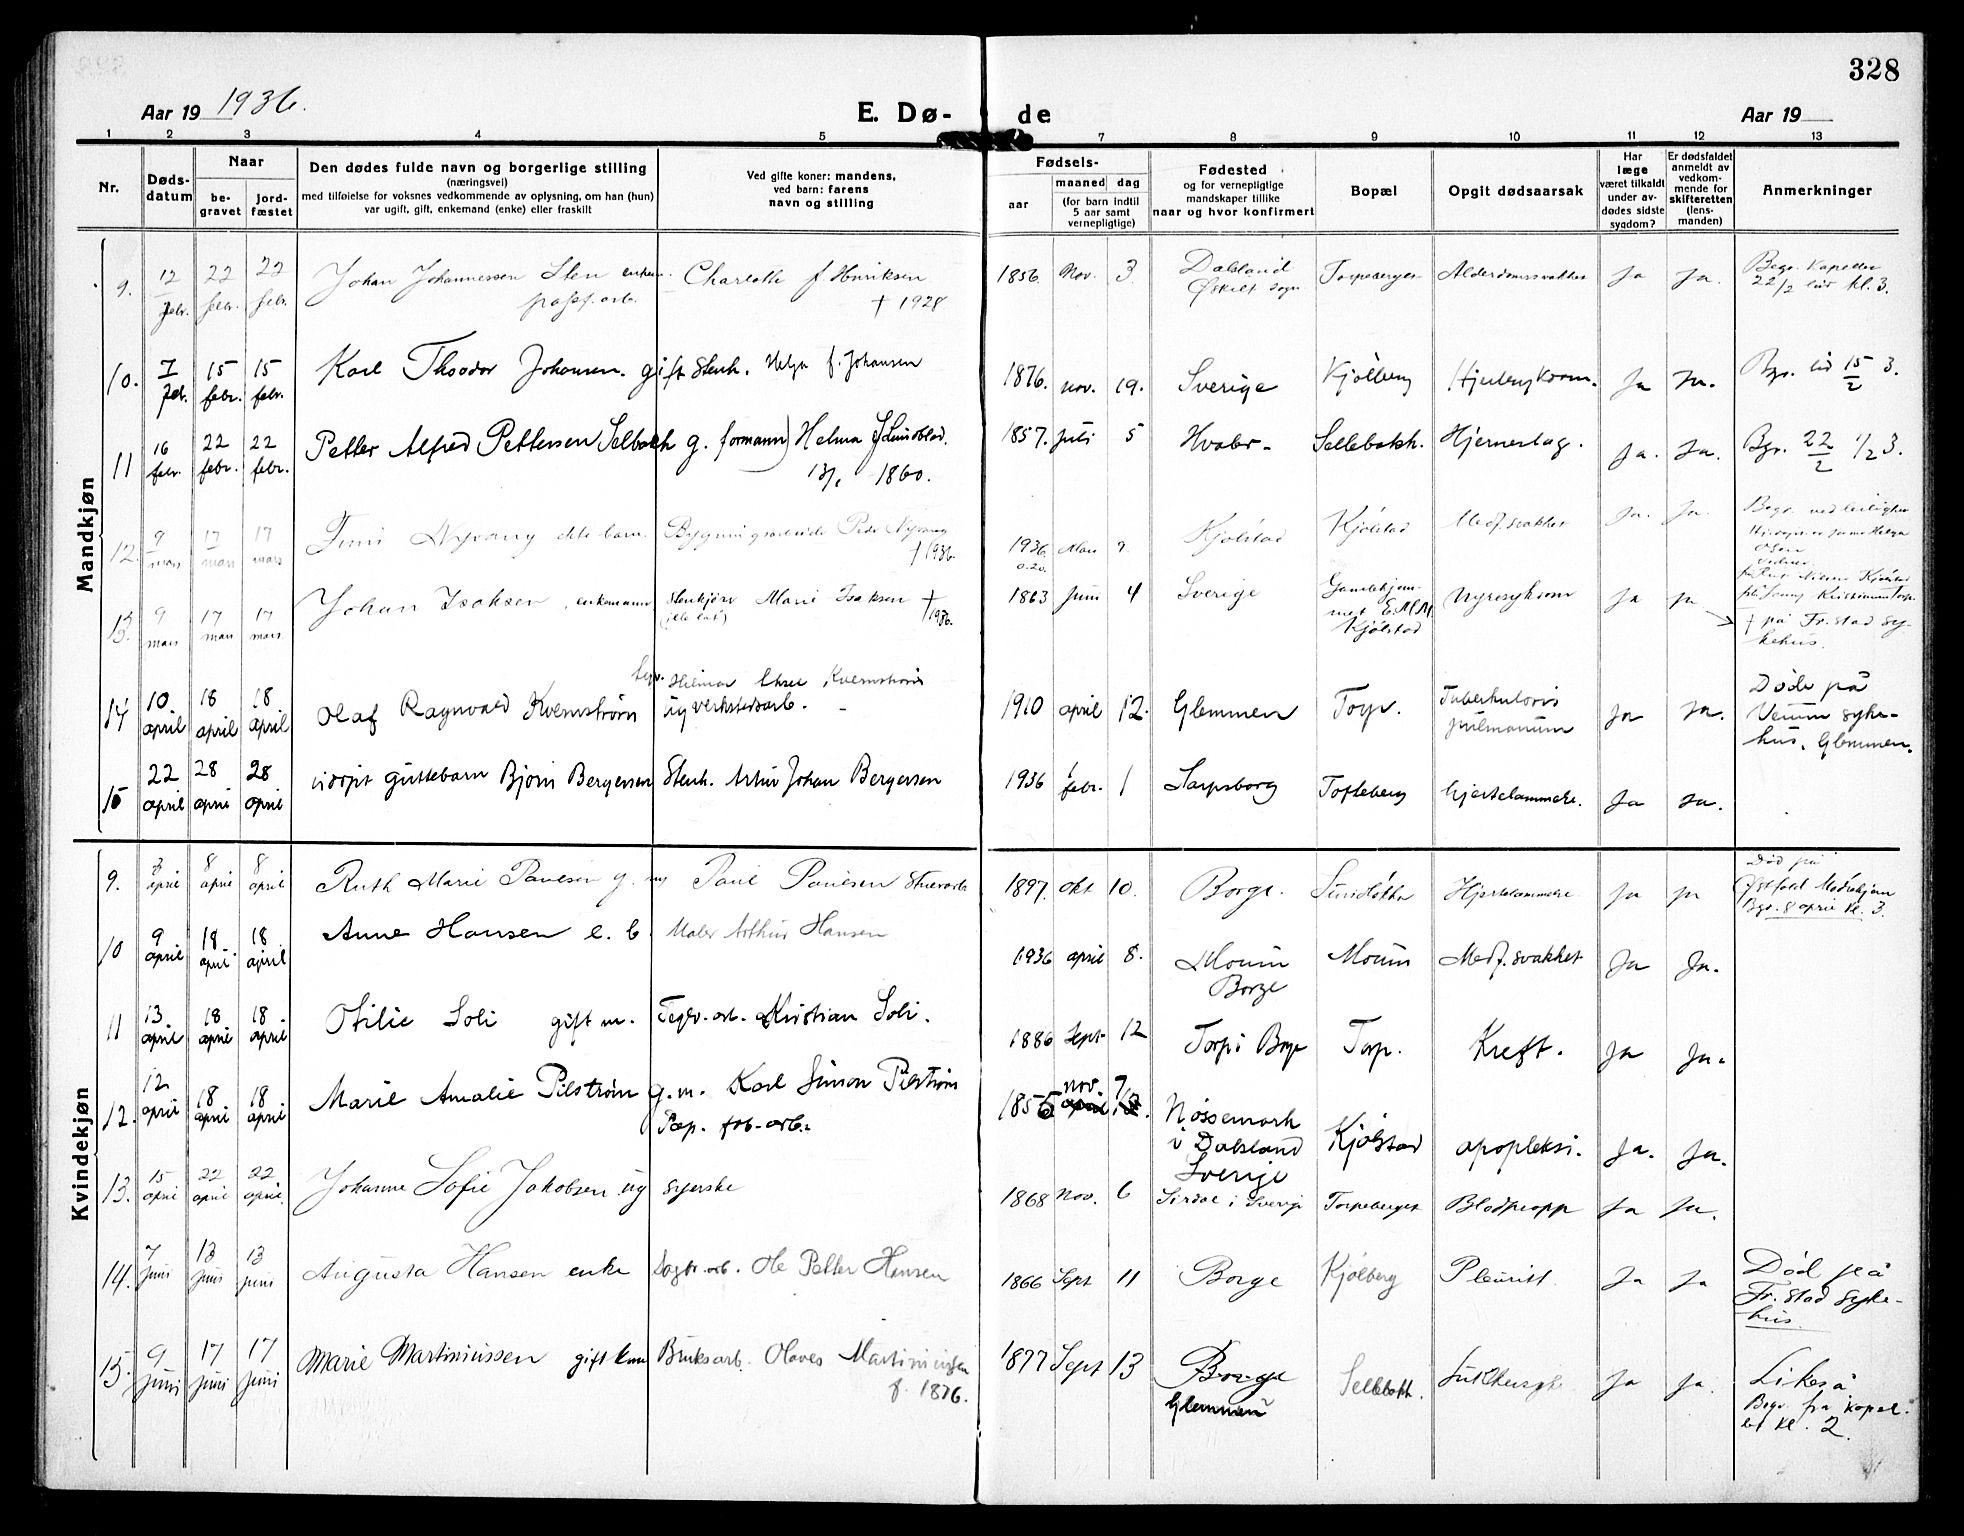 328
Aar 19 1936.
E. Dø- de
Aar 19
1 2 3 4 5 7 8 9 10 11 12 13
Nr.
Døds-
datum
Naar
be-
gravet
jord-
fæstet
Den dødes fulde navn og borgerlige stilling
(næringsvei)
med tilføielse for voksnes vedkommende av oplysning, om han (hun)
var ugift, gift, enkemand (enke) eller fraskilt
Ved gifte koner: mandens,
ved barn: farens
navn og stilling
Fødsels-
aar
maaned dag
(for barn indtil
5 aar samt
vernepligtige)
Fødested
og for vernepligtige
mandskaper tillike
naar og hvor konfirmert
Bopæl
Opgit dødsaarsak
Har
læge
været tilkaldt
under av-
dødes sidste
sygdom?
Er dødsfaldet
anmeldt av
vedkom-
mende for
skifteretten
(lens-
manden)
Anmerkninger
Mandkjøn
9. 12 febr. 22 febr. 22 febr. Johan Johannessen Sten Charlotte f. Henriksen 1856. Nov. 3 Dalsland Torpeberget Alderdomssvakhet Ja Ja. Begr. Kapellet
† 1928 22/2 kl. 3.
10. 7 feb. 15 febr. 15 febr. Karl Theodor Johansen. gift Stenh. Helga f. Johansen 1876. nov. 19. Sverige Kjølberg Ja Ja. Bgr. 15/2 3.
11 16 febr. 22 febr. 22 febr. Petter Alfred Pettersen Selbakk g. formann) Helma f Lundblad. 1857. Juli 5 Hvaler- Sellebakk. Hjerneslag. Ja. Ja. Bgr. 22/2 1/2 3.
1860.
12. 9 mars 17 mars 17 mars Nyvang ekte barn. Peder Nyvang 1936 Mars 9. Kjølstad Kjølstad Medf. svakhet Ja. Ja. Begr. ved
† 1936.
13. 9 mars 17 mars 17 mars Johan Isaksen, enkemann Marie Isaksen † 1936. 1863 Juni 4 Sverige Gamlehjem-
met
Kjølstad Nyresykdom Ja Ja † på Fr.stad sy-
kehus.
14 10. april 18 april 18 april Olaf Ragnvald Kvernstrøm ug verkstedsarb. Hilmar Kvernstrøm 1910 april 12. Glemmen Torp. Tuberkulosis
pulmonum Ja Ja. Døde på
Veum syke-
hus. Glemmen.
15 22 april 28 april 28 april udøpt guttebarn Bjørn Bergersen Stenh. Artur Johan Bergersen 1936 febr. 1 Sarpsborg Tofteberg hjertelammelse. Ja Ja.
Kvindekjøn
9. 3 april 8 april 8 april Ruth Marie Paulsen g. m Paul Paulsen 1897. okt 10. Borge. Hjertelammelse Ja Ja Død på
Østfold Mødrehjem
Bgr. 8 april kl. 3.
10 9 april 18 april 18 april Anne Hansen e. b. Maler Arthur Hansen 1936 april 8. Moum
Borge Moum Medf. svakhet Ja Ja.
11 13 april 18 april 18 april Otilie Soli gift m. Teglv.-arb. Kristian Soli. 1886 Sept. 12 Torp i Borge Torp. Kreft. Ja Ja.
12. 12 april 18 april 18 april Marie Amalie Pilstrøm g. m. Karl Simon Pilstrøm
Pap. fab-arb. 1855 nov 7 Nössemark
i Dalsland
Sverige Kjølstad apopleksi. Ja. Ja.
13. 15 april 22 april 22 april. Johanne Sofie Jakobsen ug syerske 1868 Nov. 6 i Sverige Torpeberget Blodpropp Ja Ja.
14. 7 juni 13 juni 13 juni Augusta Hansen enke Ole Petter Hansen 1866 Sept 11 Borge Kjølberg Pleuritt. Ja Ja Død på
Fr.stad syke-
hus.
15. 9 juni 17 juni 17 juni Marie Martiniussen gift kone Bruksarb. Olaves Martiniussen
f. 1876. 1877 Sept 13 Borge
Glemmen Sellebakk. Ja Ja. Likeså
Begr. fra kapel-
let kl. 2.